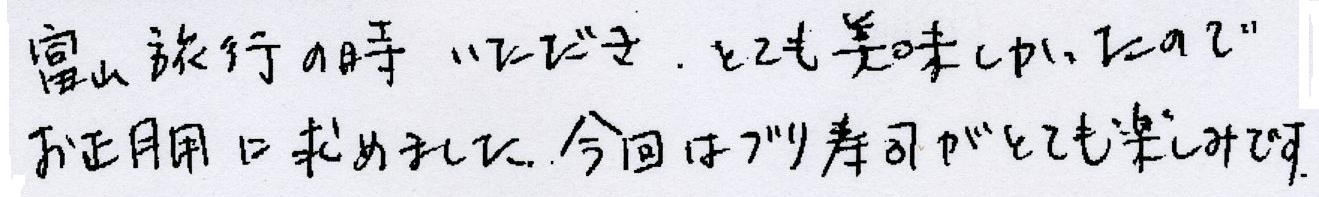 富山旅行の時いただき、とても美味しかったので
お正月用に求めました。今回はブリ寿司がとても楽しみです.